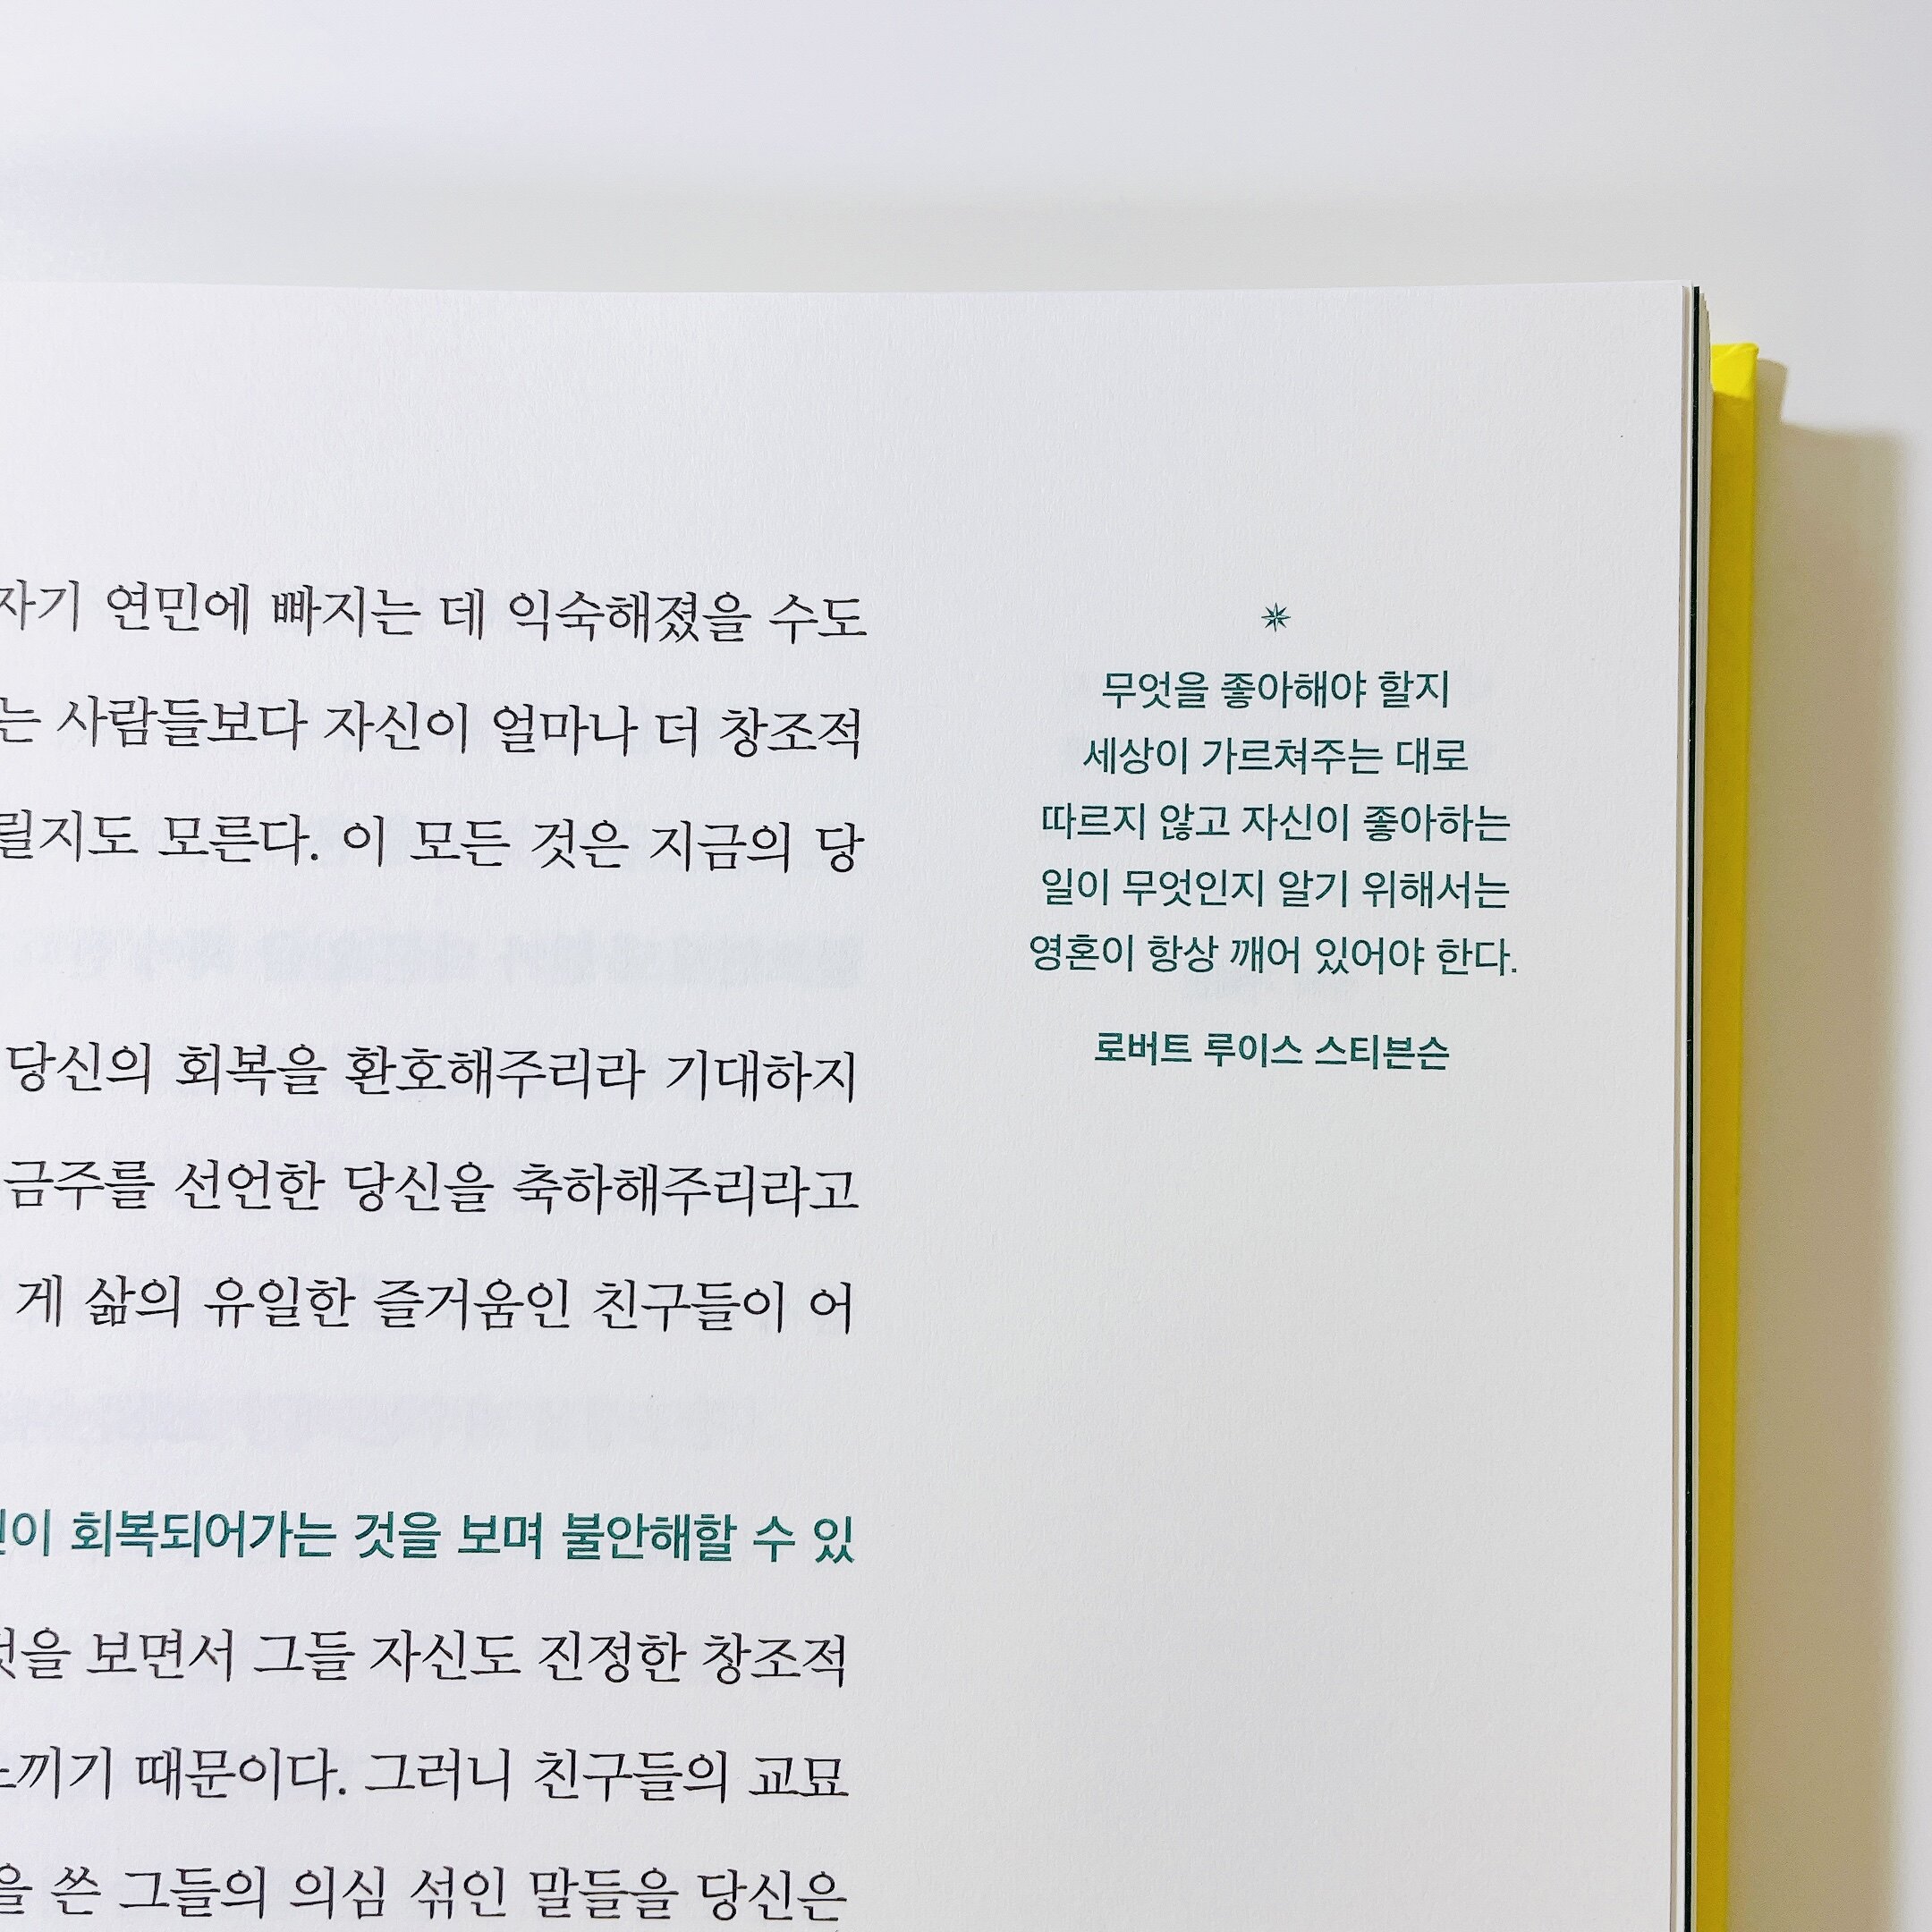 자기 연민에 빠지는 데 익숙해졌을 수도
는 사람들보다 자신이 얼마나 더 창조적
릴지도 모른다. 이 모든 것은 지금의 당
당신의 회복을 환호해주리라 기대하지
금주를 선언한 당신을 축하해주리라고
게 삶의 유일한 즐거움인 친구들이 어
회복되어가는 것을 보며 불안해할 수 있
보면서 그들 자신도 진정한 창조적
느끼기 때문이다. 그러니 친구들의 교묘
을 쓴 그들의 의심 섞인 말들을 당신은
무엇을 좋아해야 할지
세상이 가르쳐주는 대로
따르지 않고 자신이 좋아하는
일이 무엇인지 알기 위해서는
영혼이 항상 깨어 있어야 한다.
로버트 루이스 스티븐슨